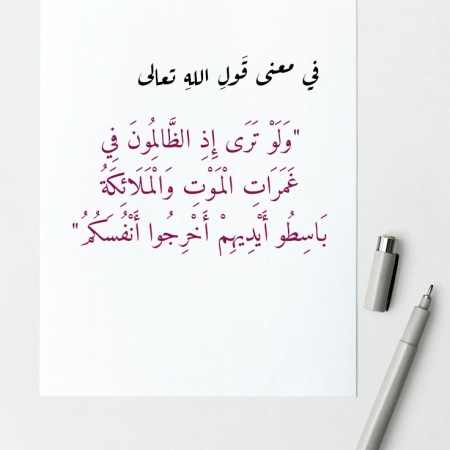 في معنى قَولِ اللهِ تعالى
"وَلَوْ تَرَى إِذِ الظَّالِمُونَ فِي
غَمَرَاتِ الْمَوْتِ وَالْمَلَائِكَةُ
بَاسِطُو أَيْدِيهِمْ أَخْرِجُوا أَنْفُسَكُمُ"